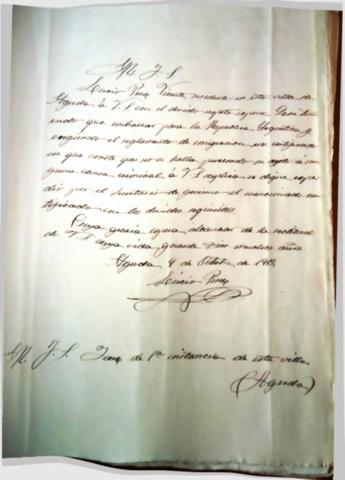 M. Y. S.
Lucio Perez Vicente, vecino de esta villa de
Agreda á V.S. con el debido respeto expone: Que
que embarcar para la Republica Argentina y
exigiendo el reglamento de emigracion un certificado
en que conste que no se halla procesado ni sujeto á
causa criminal, á V.S. suplica se digne
por el Secretario de Gobierno el mencionado
con los debidos requisitos.
Cuya gracia espera alcanzar de la
de V.S. cuya vida guarde Dios muchos años.
Agreda 9 de Octubre de
Lucio Perez
M. Y. S. Juez de 1ª instancia de esta villa.
(Agreda)